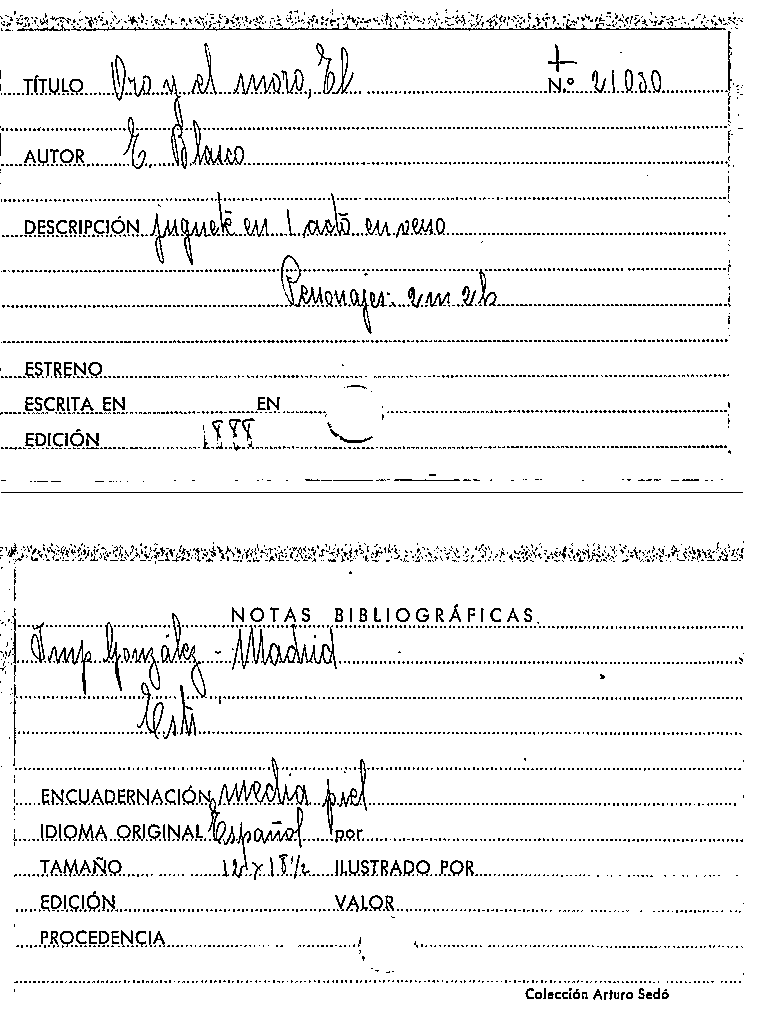 TÍTULO Oro y el moro, El
+
N.º 21030
AUTOR E. Blasco
DESCRIPCIÓN juguete en 1 acto en verso
Personajes: 2m 2h
ESTRENO
ESCRITA EN EN
EDICIÓN 1888
NOTAS BIBLIOGRÁFICAS
Imp González - Madrid
ENCUADERNACIÓN media piel
IDIOMA ORIGINAL Español por
TAMAÑO 12 x 18 1/2 ILUSTRADO POR
EDICIÓN VALOR
PROCEDENCIA
Colección Arturo Sedó